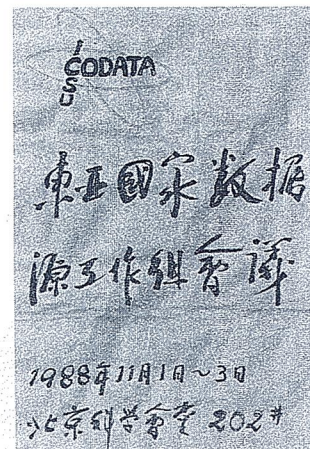 ICSU
CODATA
東亚國家数据
源工作组會議
1988年11月1日～3日
北京科学會堂 202#